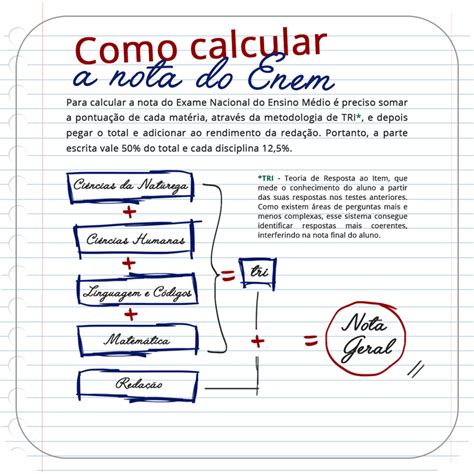 Como calcular
a nota do Enem
Para calcular a nota do Exame Nacional do Ensino Médio é preciso somar
a pontuação de cada matéria, através da metodologia de TRI*, e depois
pegar o total e adicionar ao rendimento da redação. Portanto, a parte
escrita vale 50% do total e cada disciplina 12,5%.
Ciências da Natureza
+
Ciências Humanas
+
Linguagem e Códigos
+
Matemática
Redação
*TRI - Teoria de Resposta ao Item, que
mede o conhecimento do aluno a partir
das suas respostas nos testes anteriores.
Como existem áreas de perguntas mais e
menos complexas, esse sistema consegue
identificar respostas mais coerentes,
interferindo na nota final do aluno.
= tri
+
=
Nota
Geral